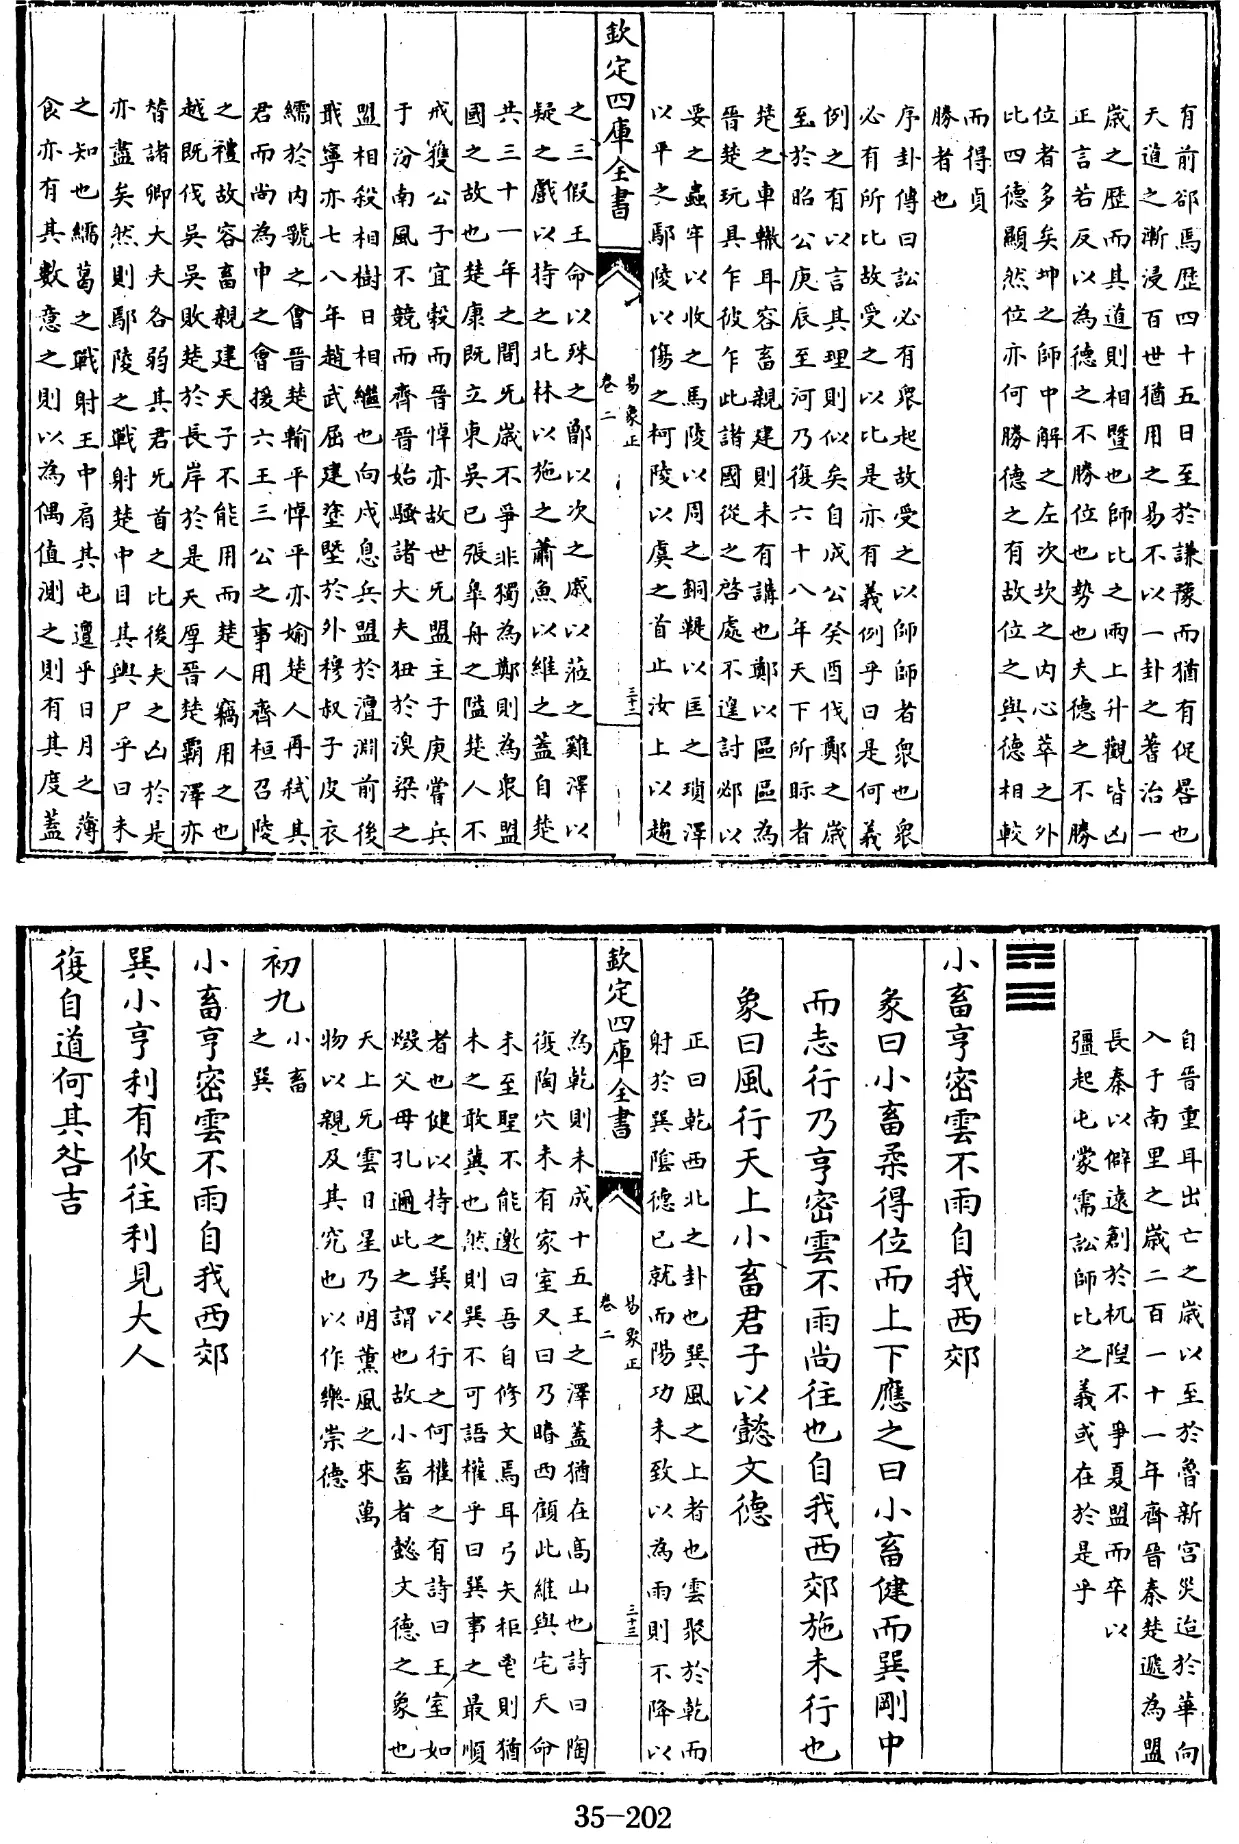 有前卻焉歷四十五日至於謙豫而猶有促晷也
天道之漸浸百世猶用之易不以一卦之蓍治一
歲之歷而其道則相暨也師比之兩上升觀皆凶
正言若反以為德之不勝位也勢也夫德之不勝
位者多矣坤之師中解之左次坎之內心萃之外
比四德顯然位亦何勝德之有故位之與德相較
而得貞
勝者也
序卦傳曰訟必有眾起故受之以師師者眾也眾
必有所比故受之以比是亦有義例乎曰是何義
例之有以言其理則似矣自成公癸酉伐鄭之歲
至於昭公庚辰至河乃復六十八年天下所眎者
楚之車轍耳容畜親建則未有講也鄭以區區為
晉楚玩具乍彼乍此諸國從之啓處不遑討邲以
要之蟲牢以收之馬陵以周之銅鞮以匡之瑣澤
以平之鄢陵以傷之柯陵以虞之首止汝上以趨
欽定四庫全書
易象正
卷二
三十二
之三假王命以殊之鄫以次之戚以蒞之雞澤以
疑之戲以持之北林以施之蕭魚以維之蓋自楚
共三十一年之間旡歲不爭非獨為鄭則為眾盟
國之故也楚康既立東吳已張皋舟之隘楚人不
戒獲公子宜穀而晉悼亦故世旡盟主子庚嘗兵
于汾南風不競而齊晉始騷諸大夫狃於溴梁之
盟相殺相樹日相繼也向戌息兵盟於澶淵前後
戢寧亦七八年趙武屈建塗墍於外穆叔子皮衣
繻於內虢之會晉楚輸平悼平亦媮楚人再弒其
君而尚為申之會援六王三公之事用齊桓召陵
之禮故容畜親建天子不能用而楚人竊用之也
越既伐吳吳敗楚於長岸於是天厚晉楚霸澤亦
替諸卿大夫各弱其君旡首之比後夫之凶於是
亦盡矣然則鄢陵之戰射楚中目其與尸乎曰未
之知也繻葛之戰射王中肩其屯邅乎日月之薄
食亦有其數意之則以為偶值測之則有其度蓋
自晉重耳出亡之歲以至於魯新宮災迨於華向
入于南里之歲二百一十一年齊晉秦楚遞為盟
長秦以僻遠創於杌隉不爭夏盟而卒以
彊起屯蒙需訟師比之義或在於是乎
小畜亨密雲不雨自我西郊
彖曰小畜柔得位而上下應之曰小畜健而巽剛中
而志行乃亨密雲不雨尚往也自我西郊施未行也
象曰風行天上小畜君子以懿文德
正曰乾西北之卦也巽風之上者也雲聚於乾而
射於巽陰德已就而陽功未致以為雨則不降以
欽定四庫全書
易象正
卷二
三十三
為乾則未成十五王之澤蓋猶在高山也詩曰陶
復陶穴未有家室又曰乃睠西顧此維與宅天命
未至聖不能邀曰吾自修文焉耳弓矢秬鬯則猶
未之敢冀也然則巽不可語權乎曰巽事之最順
者也健以持之巽以行之何權之有詩曰王室如
燬父母孔邇此之謂也故小畜者懿文德之象也
天上旡雲日星乃明薰風之來萬
物以親及其究也以作樂崇德
初九
小畜
之巽
小畜亨密雲不雨自我西郊
巽小亨利有攸往利見大人
復自道何其咎吉
35-202